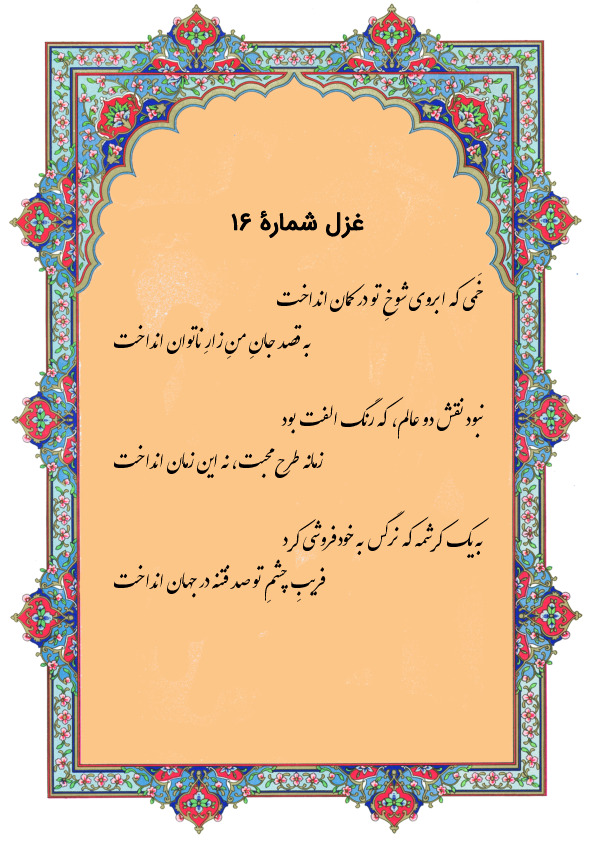 غزل شمارهٔ ۱۶
خَمی که ابروی شوخِ تو در کمان انداخت
به قصد جانِ منِ زارِ ناتوان انداخت
نبود نقش دو عالم، که رنگ الفت بود
زمانه طرح محبت، نه این زمان انداخت
به یک کرشمه که نرگس به خودفروشی کرد
فریبِ چشمِ تو صد فتنه در جهان انداخت